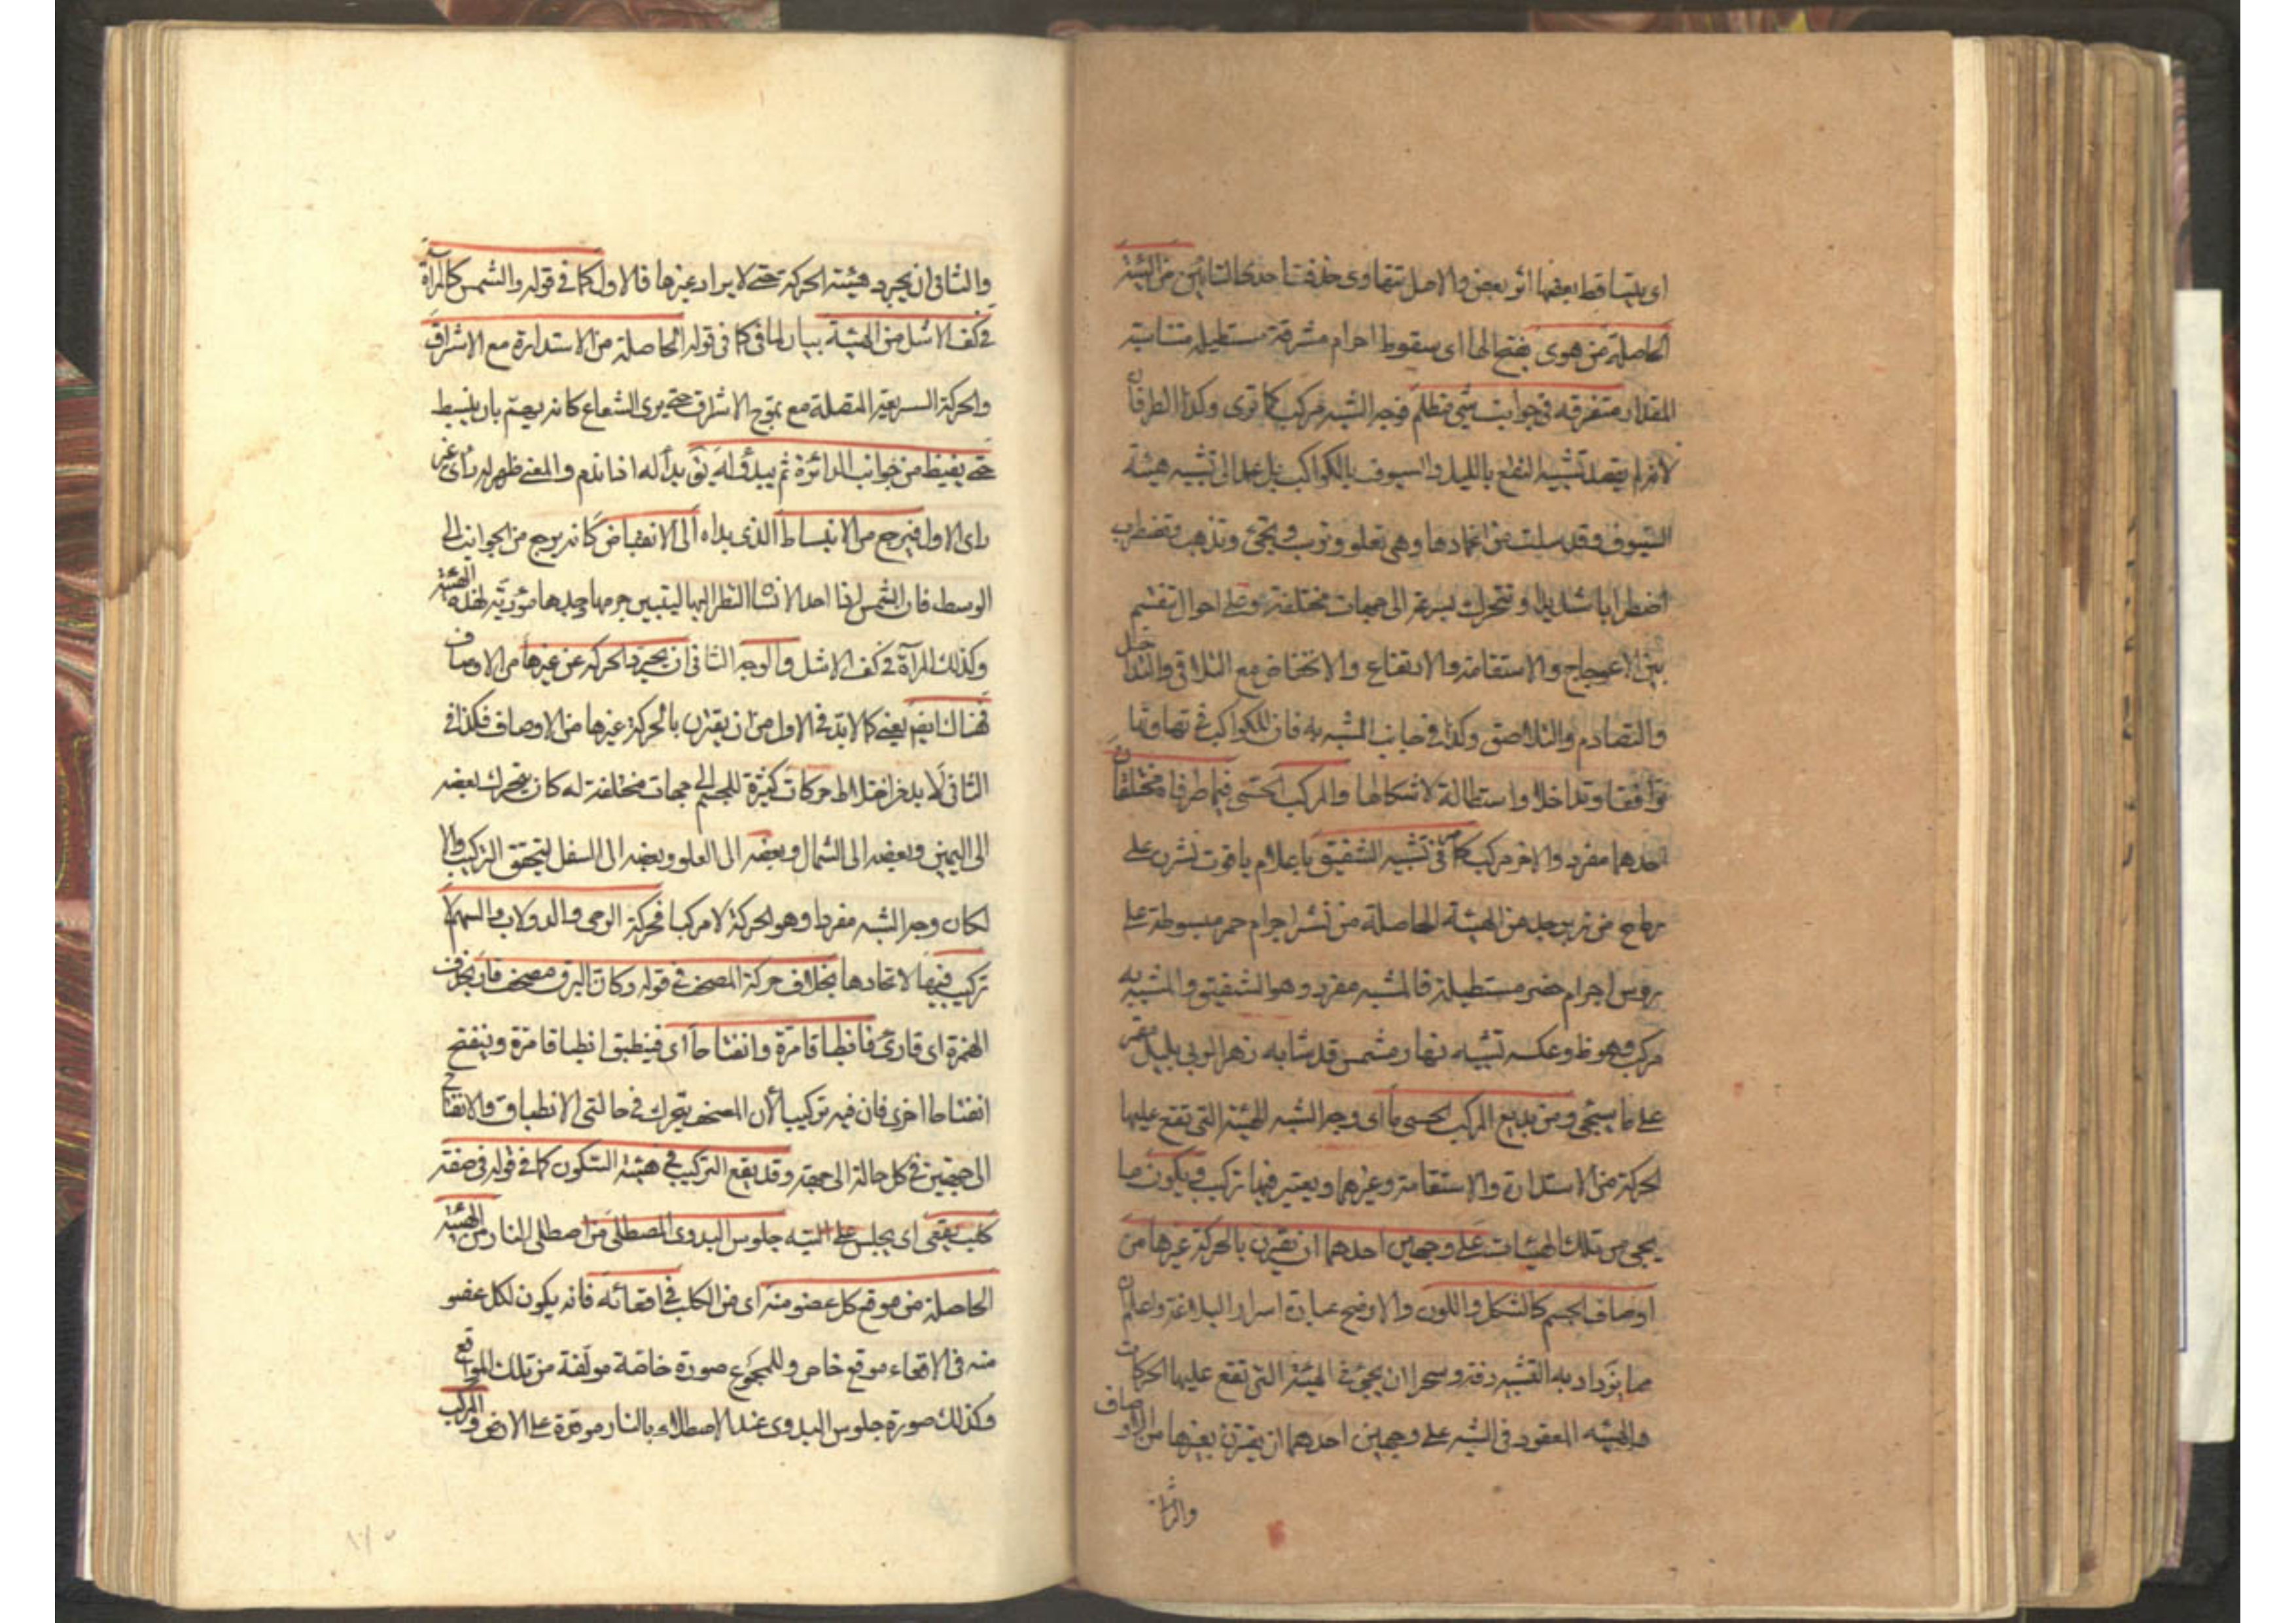 اى يتساقط بعضها اثر بعض والاصل تتهاوى حذفت احدى التائين من الهيئة
الحاصلة من هوى بفتح الها اى سقوط اجرام مشرقة مستطيلة متناسبة
المقدار متفرقة فى جوانب شئ مظلم فوجه الشبه مركب كما ترى وكذا الطرفان
لانه لم يقصد تشبيه النقع بالليل والسيوف بالكواكب بل عمد الى تشبيه هيئة
السيوف وقد سلت من اغمادها وهى تعلو وترسب وتجئ وتذهب وتضطرب
اضطرابا شديدا وتتحرك بسرعة الى جهات مختلفة وعلى احوال تنقسم
بين الاعوجاج والاستقامة والارتفاع والانخفاض مع التلاقى والتداخل
والتصادم والتلاصق وكذا فى جانب المشبه به فان للكواكب فى تهاويها
تواقعا وتداخلا واستطالة لاشكالها والمركب الحسى فيما طرفاه مختلفان
احدهما مفرد والاخر مركب كما مر فى تشبيه الشقيق باعلام ياقوت نشرن على
رماح من زبرجد من الهيئة الحاصلة من نشر اجرام حمر مبسوطة على
روس اجرام خضر مستطيلة فالمشبه مفرد وهو الشقيق والمشبه به
مركب وهو ظ وعكسه تشبيه نهار مشمس قد شابه زهر الربى بليل مقمر
على ما سيجئ ومن بديع المركب الحسى ما اى وجه الشبه الهيئة التى تقع عليها
الحركة من الاستدارة والاستقامة وغيرهما ويعتبر فيها تركيب ويكون ما
يجئ من تلك الهيئات على وجهين احدهما ان يقترن بالحركة غيرها من
اوصاف الجسم كالشكل واللون والاوضح عبارة اسرار البلاغة واعلم ان
مما يزداد به التشبيه دقة وسحرا ان يجئ فى الهيئة التى تقع عليها الحركات
والهيئة المعقود فى الشبه على وجهين احدهما ان يقترن بغيرها من الاوصاف
والثانى
والثانى ان يجرد هيئة الحركة حتى لا يراد غيرها فالاول كما فى قوله والشمس كالمرآة
فى كف الاشل من الهيئة بيان لما فى كما فى قوله الحاصلة من الاستدارة مع الاشراق
والحركة السريعة المتصلة مع تموج الاشراق حتى يرى الشعاع كانه يهم بان ينبسط
حتى يفيض من جوانب الدائرة ثم يبدو له يق بدا له اذا ندم والمعنى ظهر له راى غير
راى الاول فيرجع من الانبساط الذى بداه الى الانقباض كانه يرجع من الجوانب الى
الوسط فان الشمس اذا احد الانسان النظر اليها ليتبين جرمها وجدها مؤدية لهذه الهيئة
وكذلك المرآة فى كف الاشل والوجه الثانى ان يجرد الحركة عن غيرها من الاوصاف
فهناك ايضم يعنى كما لا بد فى الاول من ان يقترن بالحركة غيرها من الاوصاف فكذا فى
الثانى لا بد من اختلاط حركات كثيرة للجسم الى جهات مختلفة له كان يتحرك بعضه
الى اليمين وبعضه الى الشمال وبعضه الى العلو وبعضه الى السفل ليتحقق التركيب والا
لكان وجه الشبه مفردا وهو الحركة لا مركبا فحركة الرحى والدولاب والسهم لا
تركيب فيها لاتحادها بخلاف حركة المصحف فى قوله وكان البرق مصحف قار بحذف
الهمزة اى قارئ فانطباقا مرة وانفتاحا اى فينطبق انطباقا مرة وينفتح
انفتاحا اخرى فان فيه تركيبا لان المصحف يتحرك فى حالتى الانطباق والانفتاح
الى جهتين فى كل حالة الى جهة وقد يقع التركيب فى هيئة السكون كما فى قوله فى صفة
كلب يقعى اى يجلس على اليتيه جلوس البدوى المصطلى من اصطلى النار من الهيئة
الحاصلة من موقع كل عضو منه اى من الكلب فى اقعائه فانه يكون لكل عضو
منه فى الاقعاء موقع خاص وللمجموع صورة خاصة مولفة من تلك المواقع
وكذلك صورة جلوس البدوى عند الاصطلاء بالنار موقدة على الارض والمركب